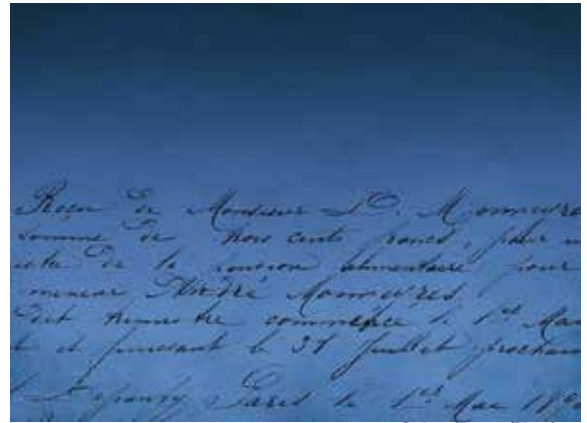 Reçu de Monsieur D. Monneyres
somme de trois cents francs, pour u
de la pension alimentaire pour
mineur André Monneyres.
Dit trimestre commence le 1er Mai
et finissant le 31 Juillet prochain
Paris le 1er Mai 189